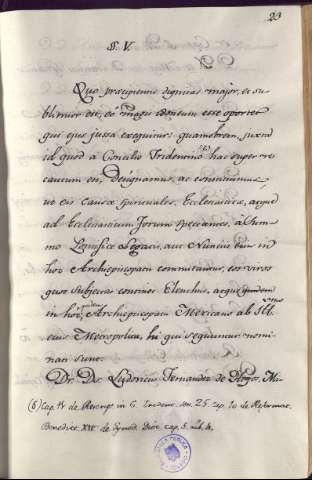 23
§. V.
Quo præcipientis dignitas major, et su-
blimior est, eo magis idoneum esse oportet
qui ejus jussa exequitur: quamobrem, juxta
id quod a Concilio Tridentino (6) hac super re
cautum est, Designamus, ac
ut eis Causæ Spirituales, Ecclesiasticæ, atque
ad Ecclesiasticum Forum spectantes, à Sum-
mo Pontifice Legatis, aut Nunciis in
hoc Archiepiscopatu committantur, eos viros
quos subjectus continet Elenchus, atque
in hoc quidem Archiepiscopatu Mexicano ab Ill.mo
ejus Metropolita, hi qui sequuntur nomi-
nati sunt.
Dr. Dn. Ludovicus Fernandez de Hoyos, Mi-
(6) Cap. de Rescrip. in 6. Trident. ses. 25. cap. 10. de Reformat.
Benedict. XIV. de Synod. Diœc. cap. 5. Lib. 4.